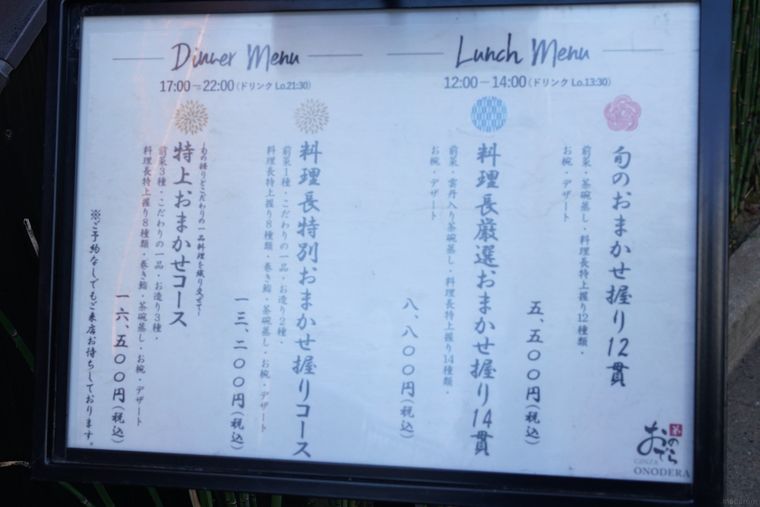 Dinner Menu
17:00－22:00（ドリンク Lo.21:30）
Lunch Menu
12:00－14:00（ドリンク Lo.13:30）
旬のおまかせ握り12貫
前菜・茶碗蒸し・料理長特上握り12種類・
お椀・デザート
五、五〇〇円（税込）
料理長厳選おまかせ握り14貫
前菜・雲丹入り茶碗蒸し・料理長特上握り14種類・
お椀・デザート
八、八〇〇円（税込）
料理長特別おまかせ握りコース
前菜1種・こだわりの一品・お造り2種・
料理長特上握り8種類・巻き鮨・茶碗蒸し・お椀・デザート
一三、二〇〇円（税込）
～旬の握りとこだわりの一品料理を織り交ぜて～
特上おまかせコース
前菜3種・こだわりの一品・お造り3種・
料理長特上握り8種類・巻き鮨・茶碗蒸し・お椀・デザート
一六、五〇〇円（税込）
※ご予約なしでもご来店お待ちしております。
おのでら
GINZA
ONODERA